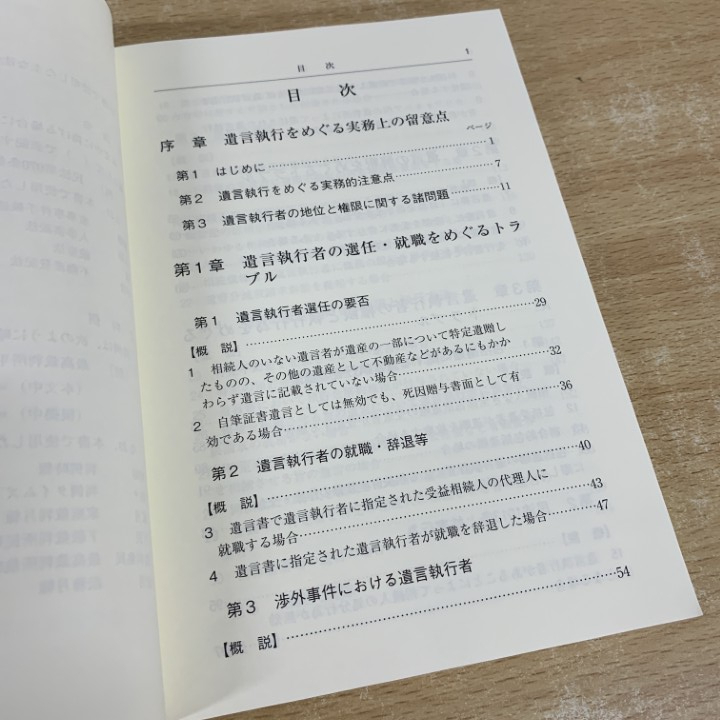 目 次 1
目 次
序 章 遺言執行をめぐる実務上の留意点
ページ
第1 はじめに……1
第2 遺言執行をめぐる実務的注意点……7
第3 遺言執行者の地位と権限に関する諸問題……11
第1章 遺言執行者の選任・就職をめぐるトラ
ブル
第1 遺言執行者選任の要否
【概 説】……29
1 相続人のいない遺言者が遺産の一部について特定遺贈し
たものの、その他の遺産として不動産などがあるにもかか
わらず遺言に記載されていない場合……32
2 自筆証書遺言としては無効でも、死因贈与書面として有
効である場合……36
第2 遺言執行者の就職・辞退等
【概 説】……40
3 遺言書で遺言執行者に指定された受益相続人の代理人に
就職する場合……43
4 遺言書に指定された遺言執行者が就職を辞退した場合……47
第3 渉外事件における遺言執行者
【概 説】……54